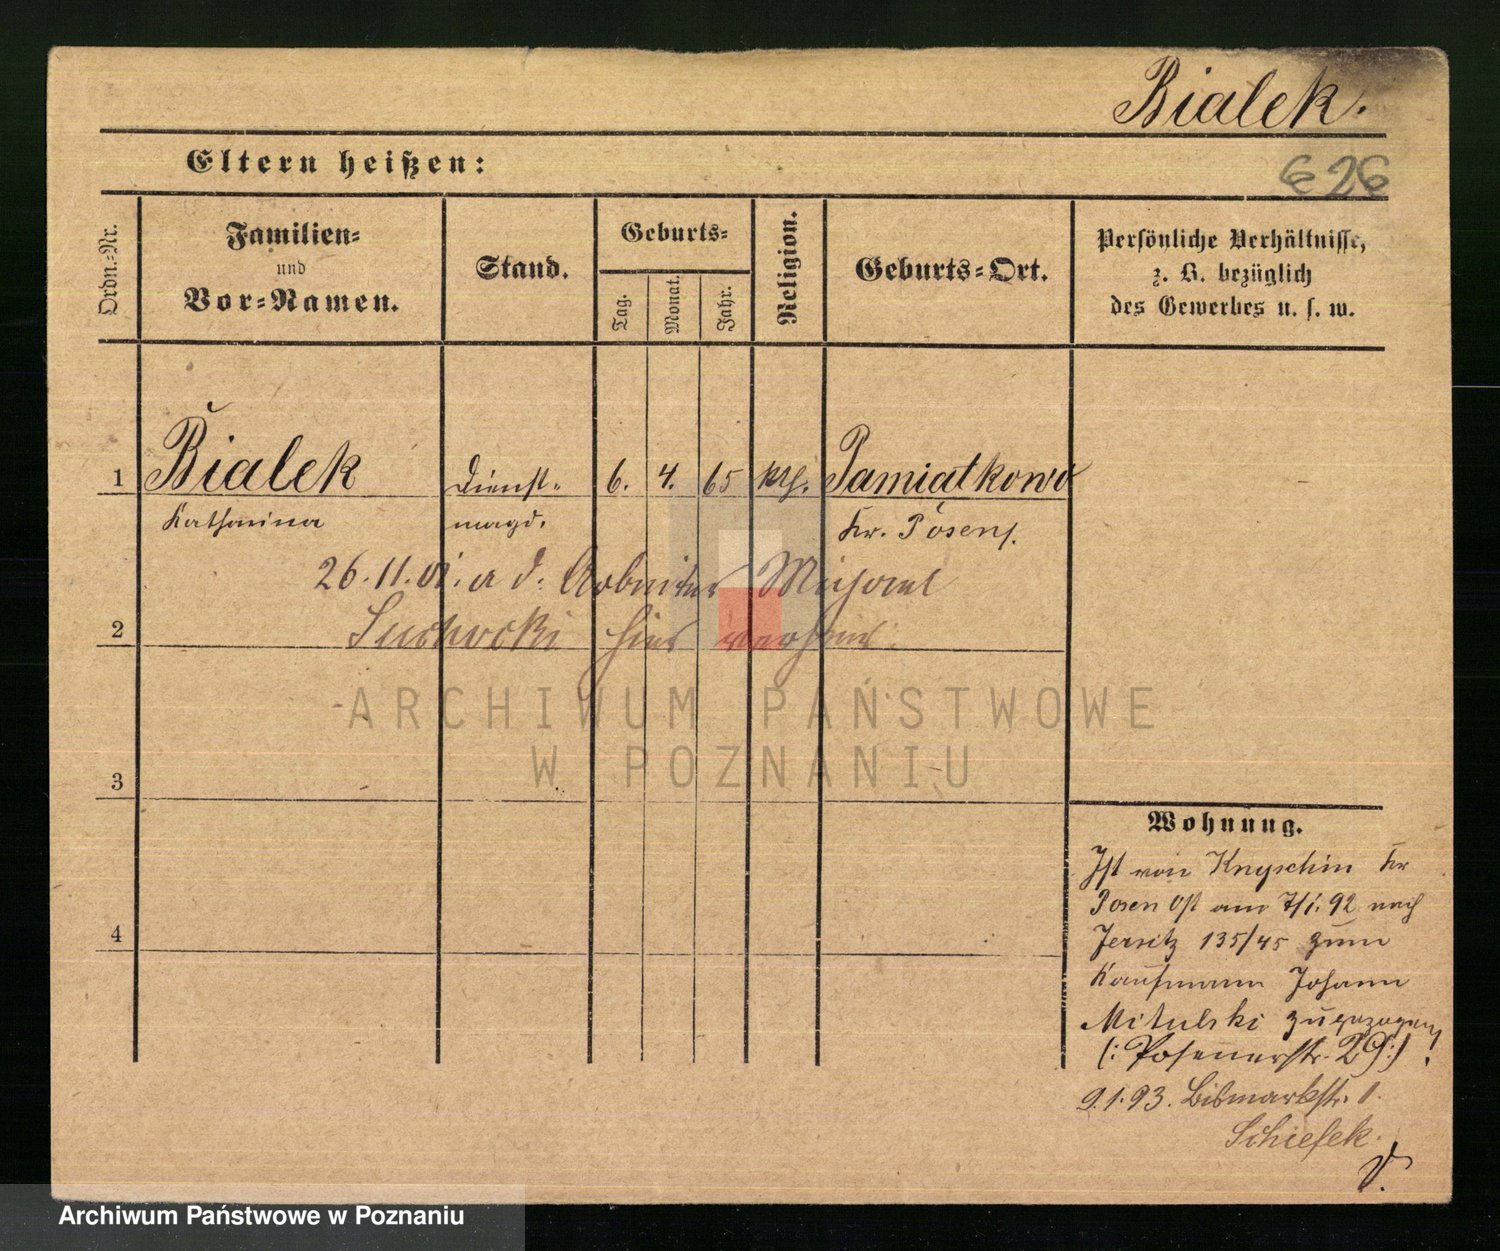 Bialek.
Eltern heißen:
E26
Ordn.-Nr.
Familien-
und
Vor-Namen.
Stand.
Geburts-
Tag.
Monat.
Jahr.
Religion.
Geburts-Ort.
Persönliche Verhältnisse,
z. B. bezüglich
des Gewerbes u. s. w.
1 Bialek Dienst- 6. 4. 65 kth. Pamiatkowo
Katharina magd. Kr. Posen
26.11.01. a d. Arbeiter
2 Suchocki hier
ARCHIWUM PAŃSTWOWE
W POZNANIU
3
4
Wohnung.
Ist von Knyschin Kr
Posen Ost am 7/1.92 nach
Jersitz 135/45 zum
Kaufmann Johann
Mitulski zugezogen!
(: Posenerstr. 29 :)
9.1.93. Bismarckstr. 1.
Schiefek.
Archiwum Państwowe w Poznaniu